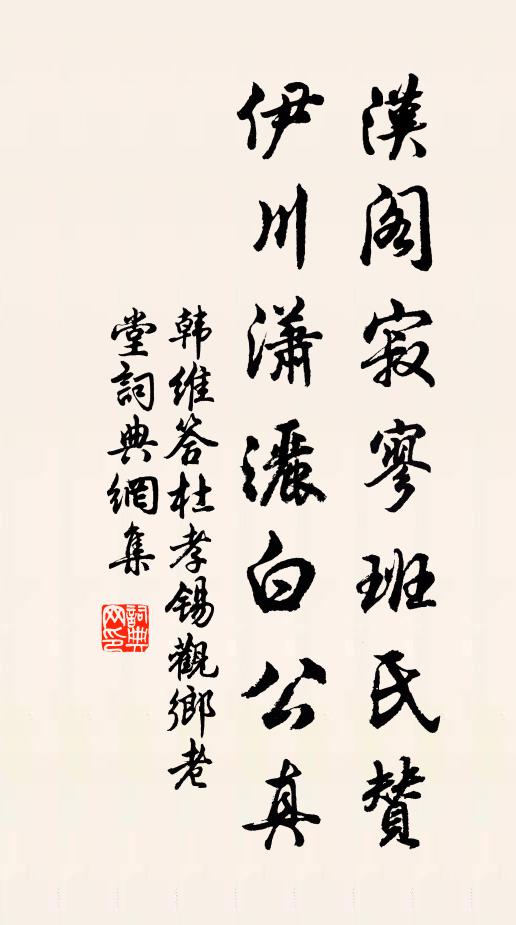 漢閣寂寥班氏贊
伊川瀟灑白公真
韩維答杜孝錫觀鄉老
堂詞典網集
詞典網印